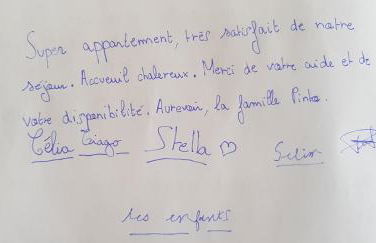 Super appartement, très satisfait de notre
séjour. Accueuil chaleureux. Merci de votre aide et de
votre disponibilité. Aurevoir, la famille Pinto.
Célia Tiago Stella ♡ Selim
les enfants